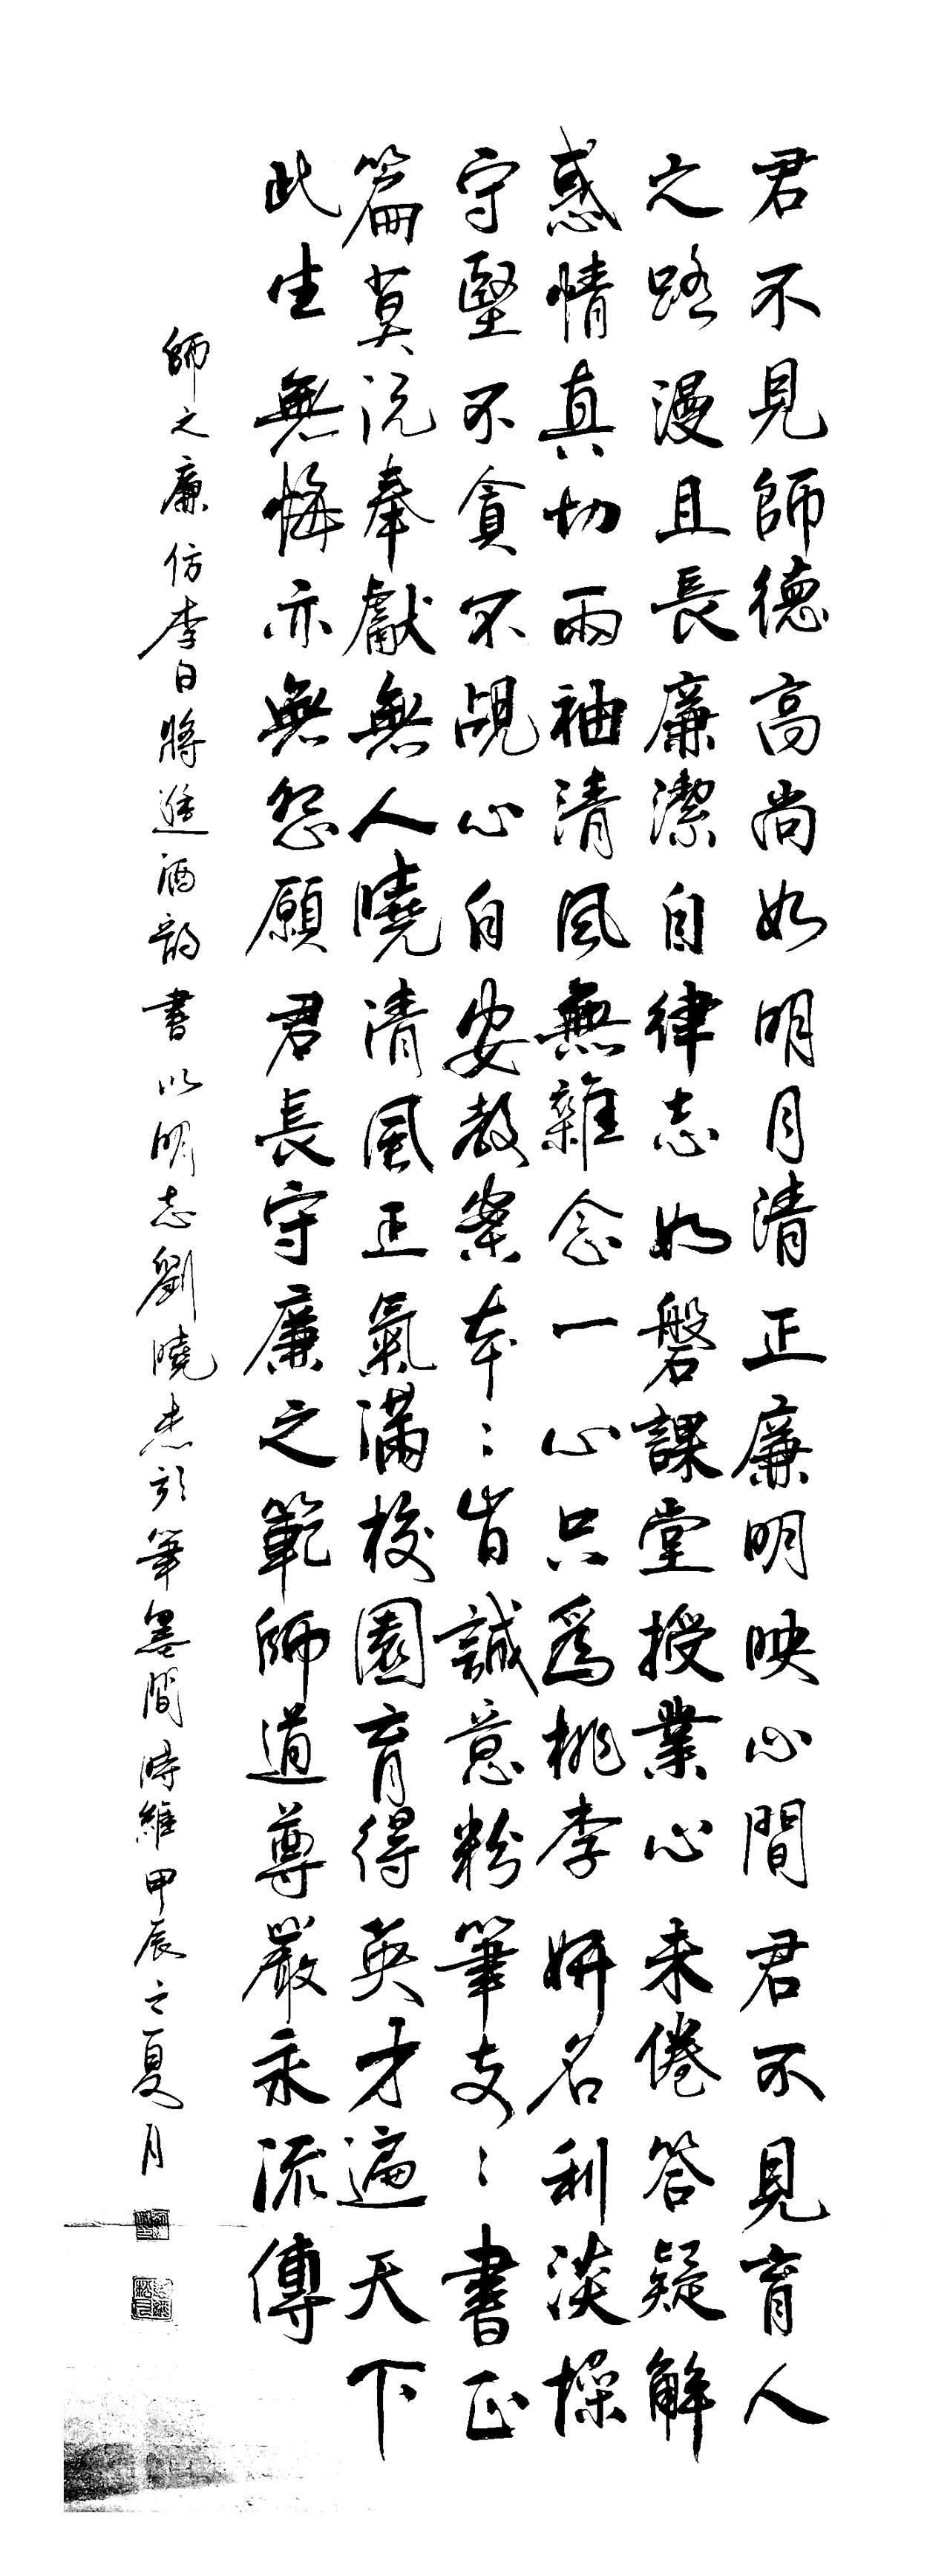 君不見師德高尚如明月清正廉明映心間君不見育人
之路漫且長廉潔自律志如磐課堂授業心未倦答疑解
惑情真切兩袖清風無雜念一心只爲桃李妍名利淡操
守堅不貪不覬心自安教案本〻皆誠意粉筆支〻書正
篇莫说奉獻無人曉清風正氣满校園育得英才遍天下
此生無悔亦無怨願君長守廉之範師道尊嚴永流傳
師之廉仿李白將進酒韵書以明志劉曉杰於筆墨間時維甲辰之夏月